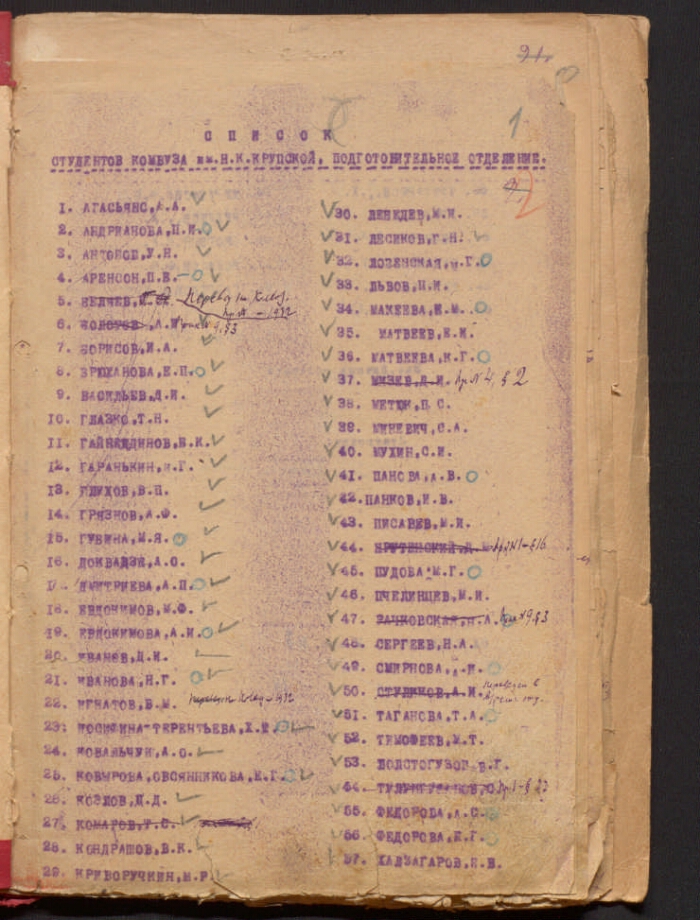 21.
1
С П И С О К
СТУДЕНТОВ КОМВУЗА им.Н.К.КРУПСКОЙ, ПОДГОТОВИТЕЛЬНОЕ ОТДЕЛЕНИЕ.
2
1. АГАСЬЯНС,А.А.
2. АНДРИАНОВА,Н.И.
3. АНТОНОВ,У.Н.
4. АРЕНСОН,П.Е.
5.
6.
7. БОРИСОВ,И.А.
8. БРЮХАНОВА,Е.П.
9. ВАСИЛЬЕВ,Д.И.
10. ГЛАЗКО,Т.Н.
11. ГАЙНЕДДИНОВ,В.К.
12. ГАРАНЬКИН,И.Г.
13. ГЛУХОВ,В.П.
14. ГРЯЗНОВ,А.Ф.
15. ГУБИНА,М.Я.
16. А.О.
17. ДМИТРИЕВА,А.П.
18. ЕВДОКИМОВ,М.Ф.
19. ЕВДОКИМОВА,А.И.
20. ИВАНОВ,Д.И.
21. ИВАНОВА,Н.Г.
22. ИГНАТОВ,В.М.
23. ТЕРЕНТЬЕВА,
24. КОВАЛЬЧУК,А.О.
25. КОВЫРОВА,ОВСЯННИКОВА,Е.Г.
26. КОЗЛОВ,Д.Д.
27. КОМАРОВ,Т.С.
28. КОНДРАШОВ,В.К.
29. КРИВОРУЧКИН,М.Р.
30. ЛЕБЕДЕВ,М.И.
31. ЛЕСИКОВ,Г.Н.
32. ЛОЗЕНСКАЯ,
33. ЛЬВОВ,П.И.
34. МАКЕЕВА,Е.М.
35. МАТВЕЕВ,Е.И.
36. МАТВЕЕВА,К.Г.
37. МИЗЕВ,Д.И. Пр.N 4, § 2
38. МИТЮК,П.С.
39. МИНЕВИЧ,С.А.
40. МУХИН,С.И.
41. ПАНОВА,А.В.
42. ПАНКОВ,И.В.
43. ПИСАРЕВ,М.И.
44.
45. ПУДОВА,М.Г.
46. ПЧЕЛИНЦЕВ,М.И.
47.
48. СЕРГЕЕВ,Н.А.
49. СМИРНОВА,
50. А.И.
51. ТАГАНОВА,Т.А.
52. ТИМОФЕЕВ,М.Т.
53. ТОЛСТОГУЗОВ,В.Г.
54.
55. ФЕДОРОВА,А.С.
56. ФЕДОРОВА,Е.Г.
57. ХАДЗАГАРОВ,Н.В.